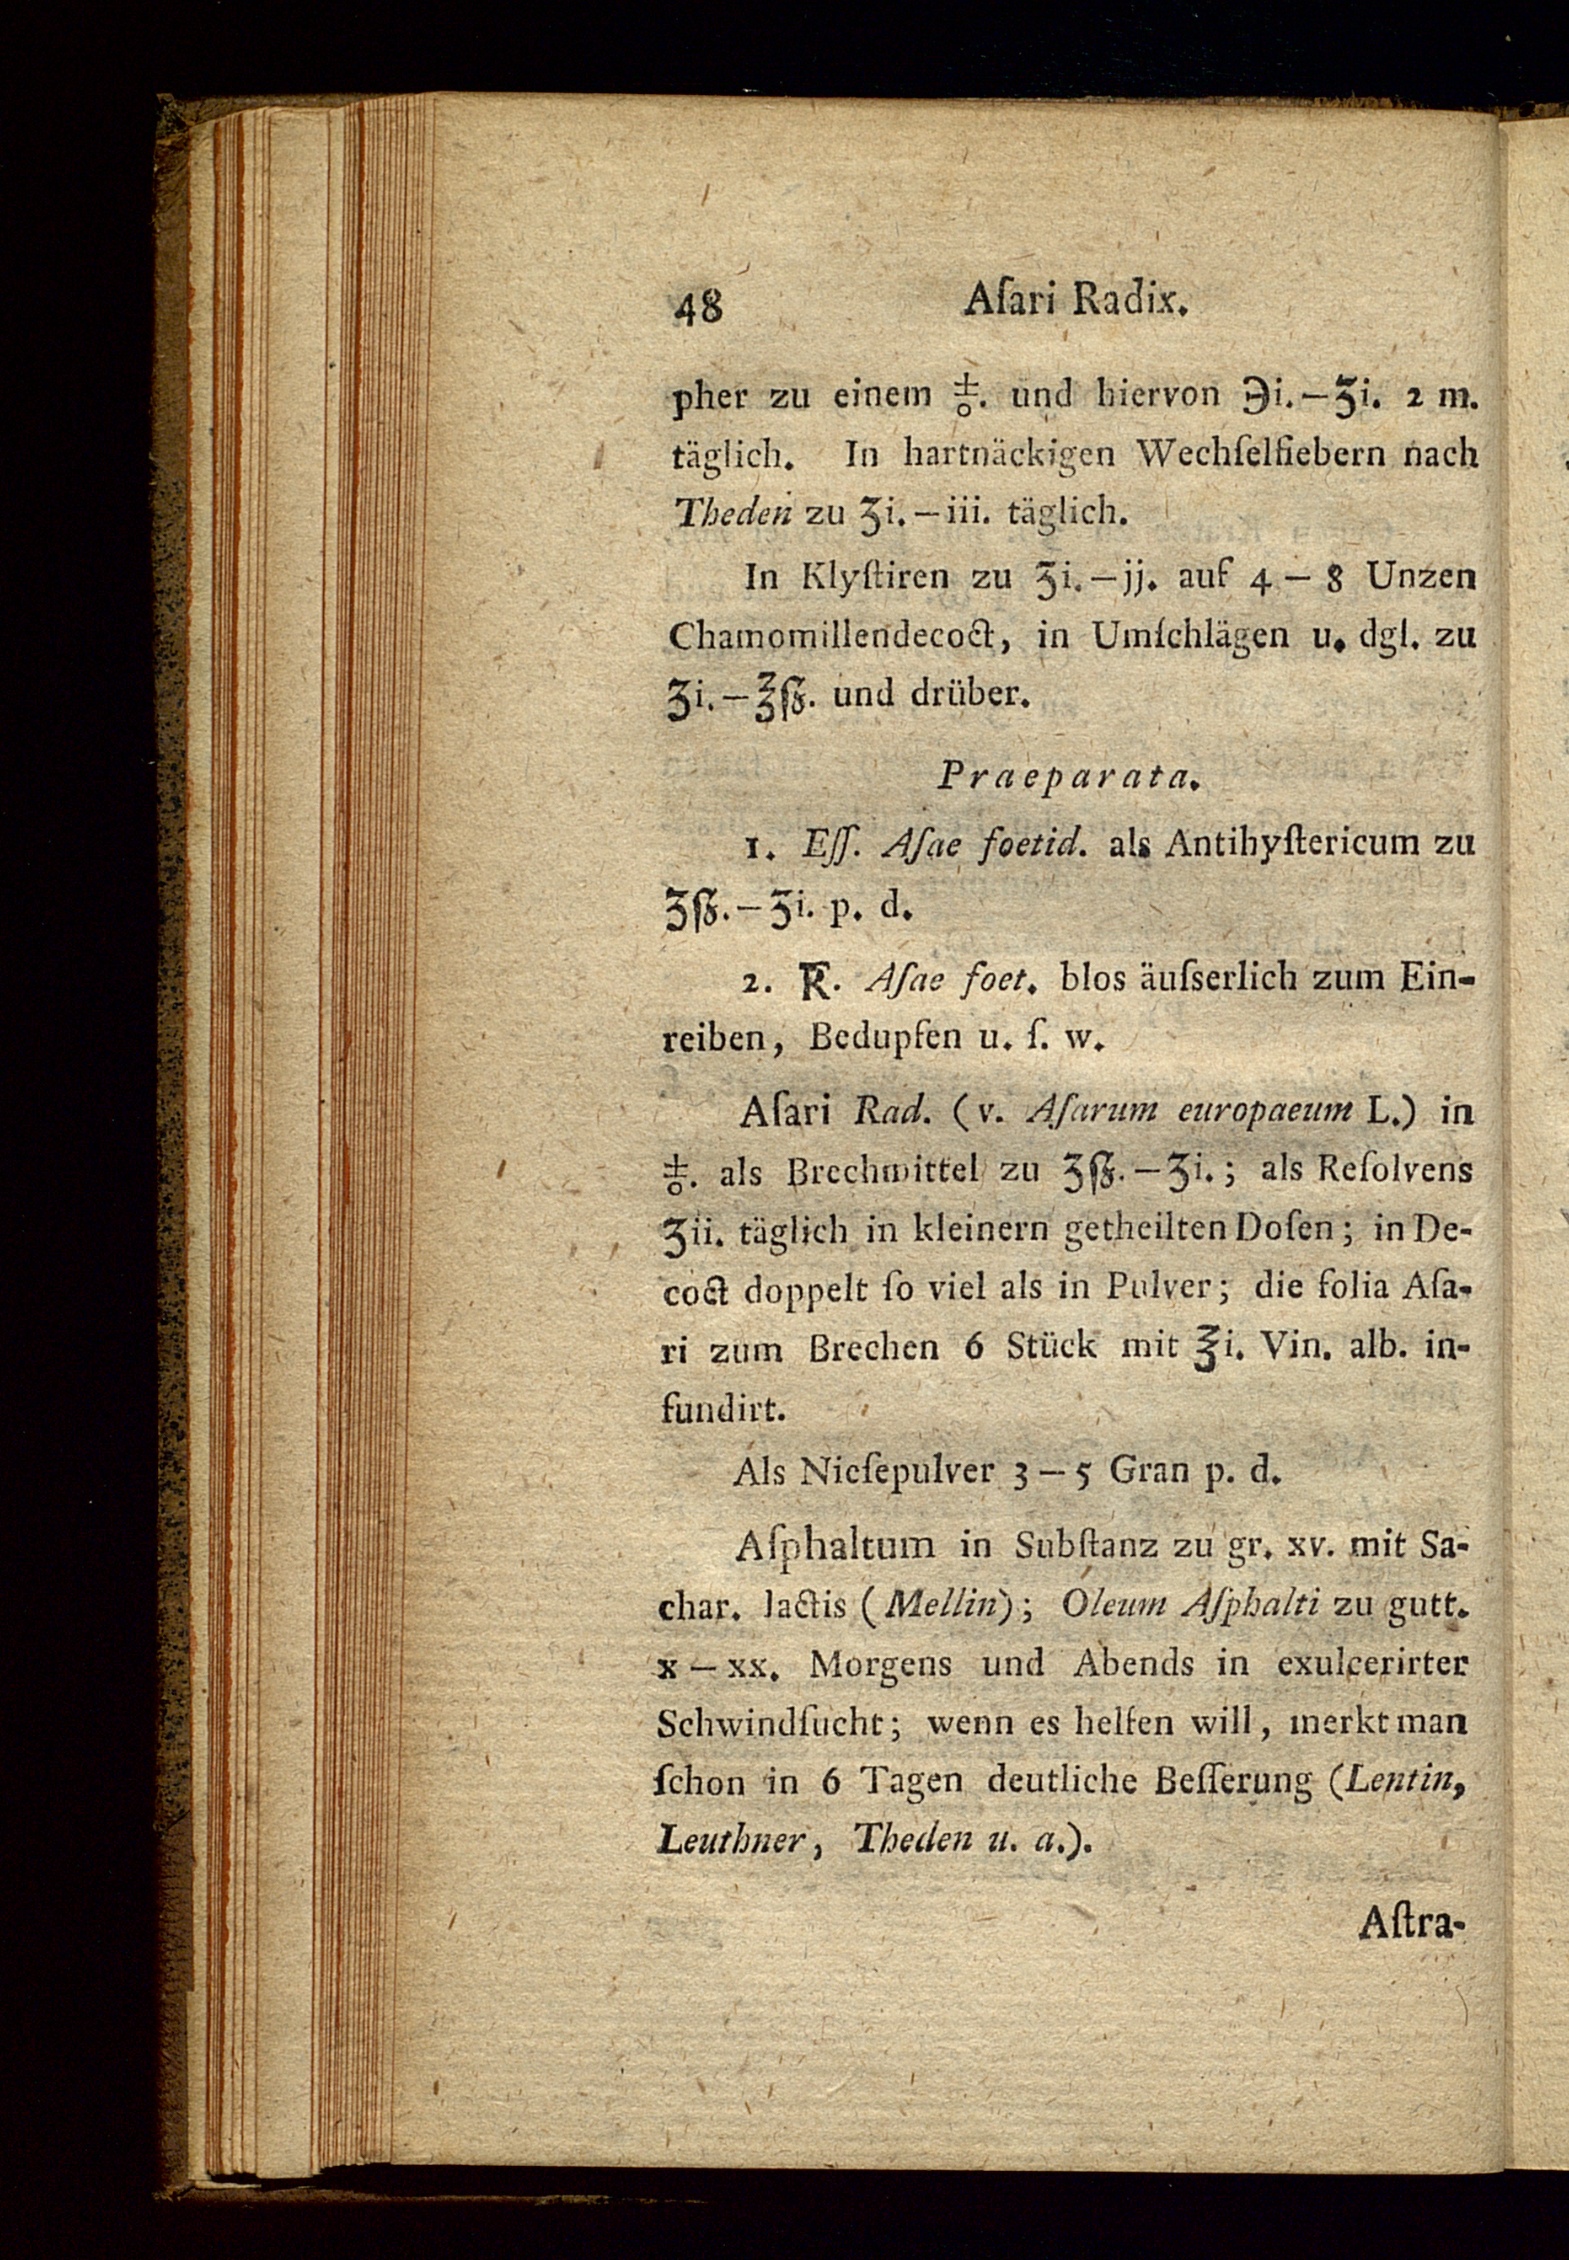 48 Aſari Radix.
pher zu einem ⨦. und hiervon ℈i.—ʒi. 2 m.
täglich. In hartnäckigen Wechſelfiebern nach
Theden zu ʒi.—iii. täglich.
In Klyſtiren zu ʒi.—jj. auf 4 — 8 Unzen
Chamomillendecoct, in Umſchlägen u. dgl. zu
ʒi.—℥ß. und drüber.
Praeparata.
1. Eſſ. Aſae foetid. als Antihyſtericum zu
ʒß.—ʒi. p. d.
2. Aſae foet. blos äuſserlich zum Ein-
reiben, Bedupfen u. ſ. w.
Aſari Rad. (v. Aſarum europaeum L.) in
⨦. als Brechmittel zu ʒß.—ʒi.; als Reſolvens
ʒii. täglich in kleinern getheilten Doſen; in De-
coct doppelt ſo viel als in Pulver; die folia Aſa-
ri zum Brechen 6 Stück mit ℥i. Vin. alb. in-
fundirt.
Als Nieſepulver 3 — 5 Gran p. d.
Aſphaltum in Subſtanz zu gr. xv. mit Sa-
char. lactis (Mellin); Oleum Aſphalti zu gutt.
x — xx. Morgens und Abends in exulcerirter
Schwindſucht; wenn es helfen will, merkt man
ſchon in 6 Tagen deutliche Beſſerung (Lentin,
Leuthner, Theden u. a.).
Aſtra-